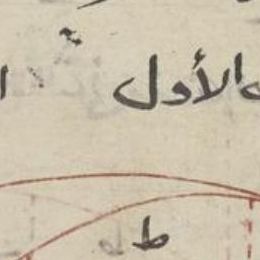 الأول
ط